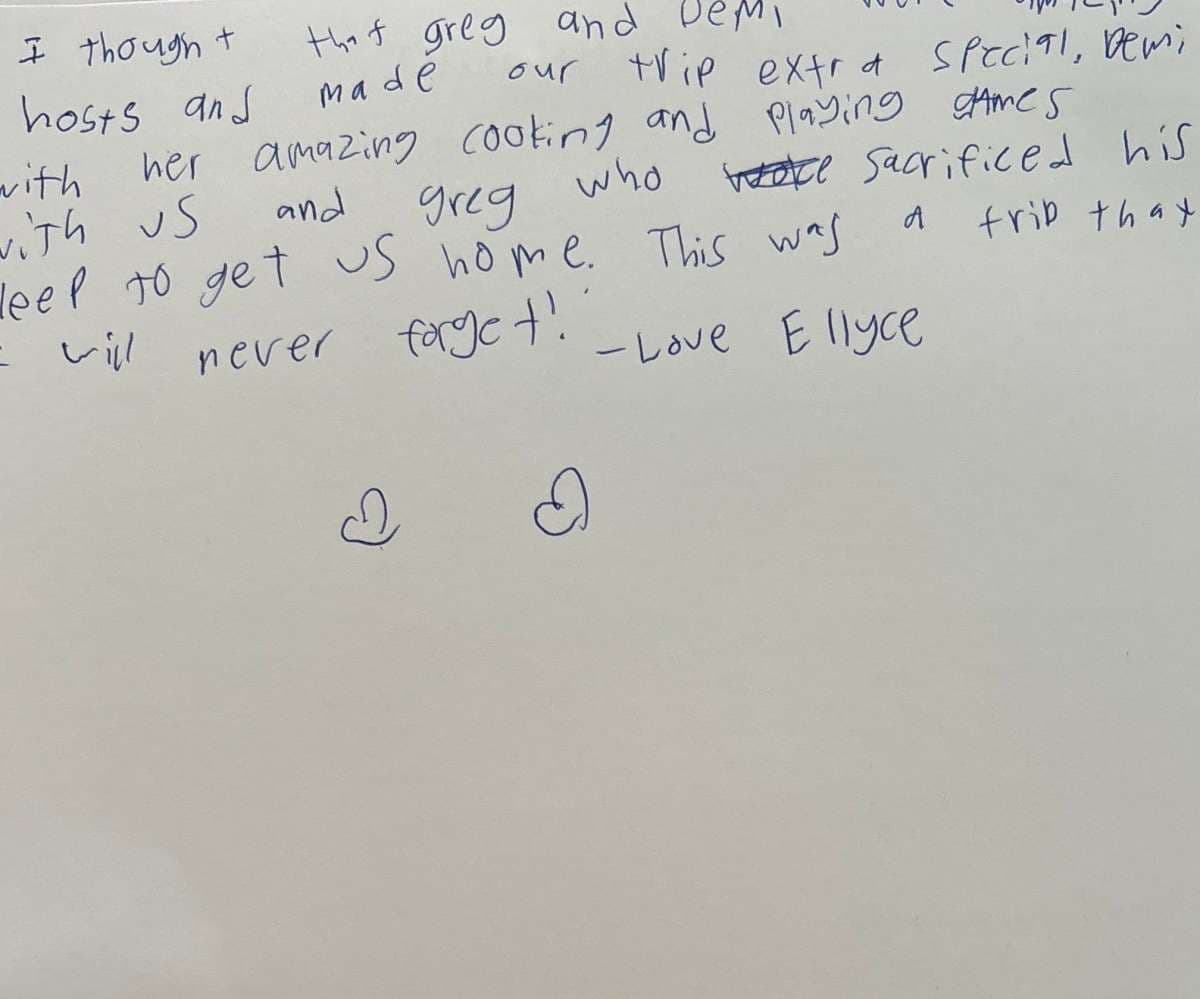 I thought that greg and Demi
hosts and made our trip extra special, Demi
with her amazing cooking and playing games
with us and greg who sacrificed his
leep to get us home. This was a trip that
will never forget! -Love Ellyce